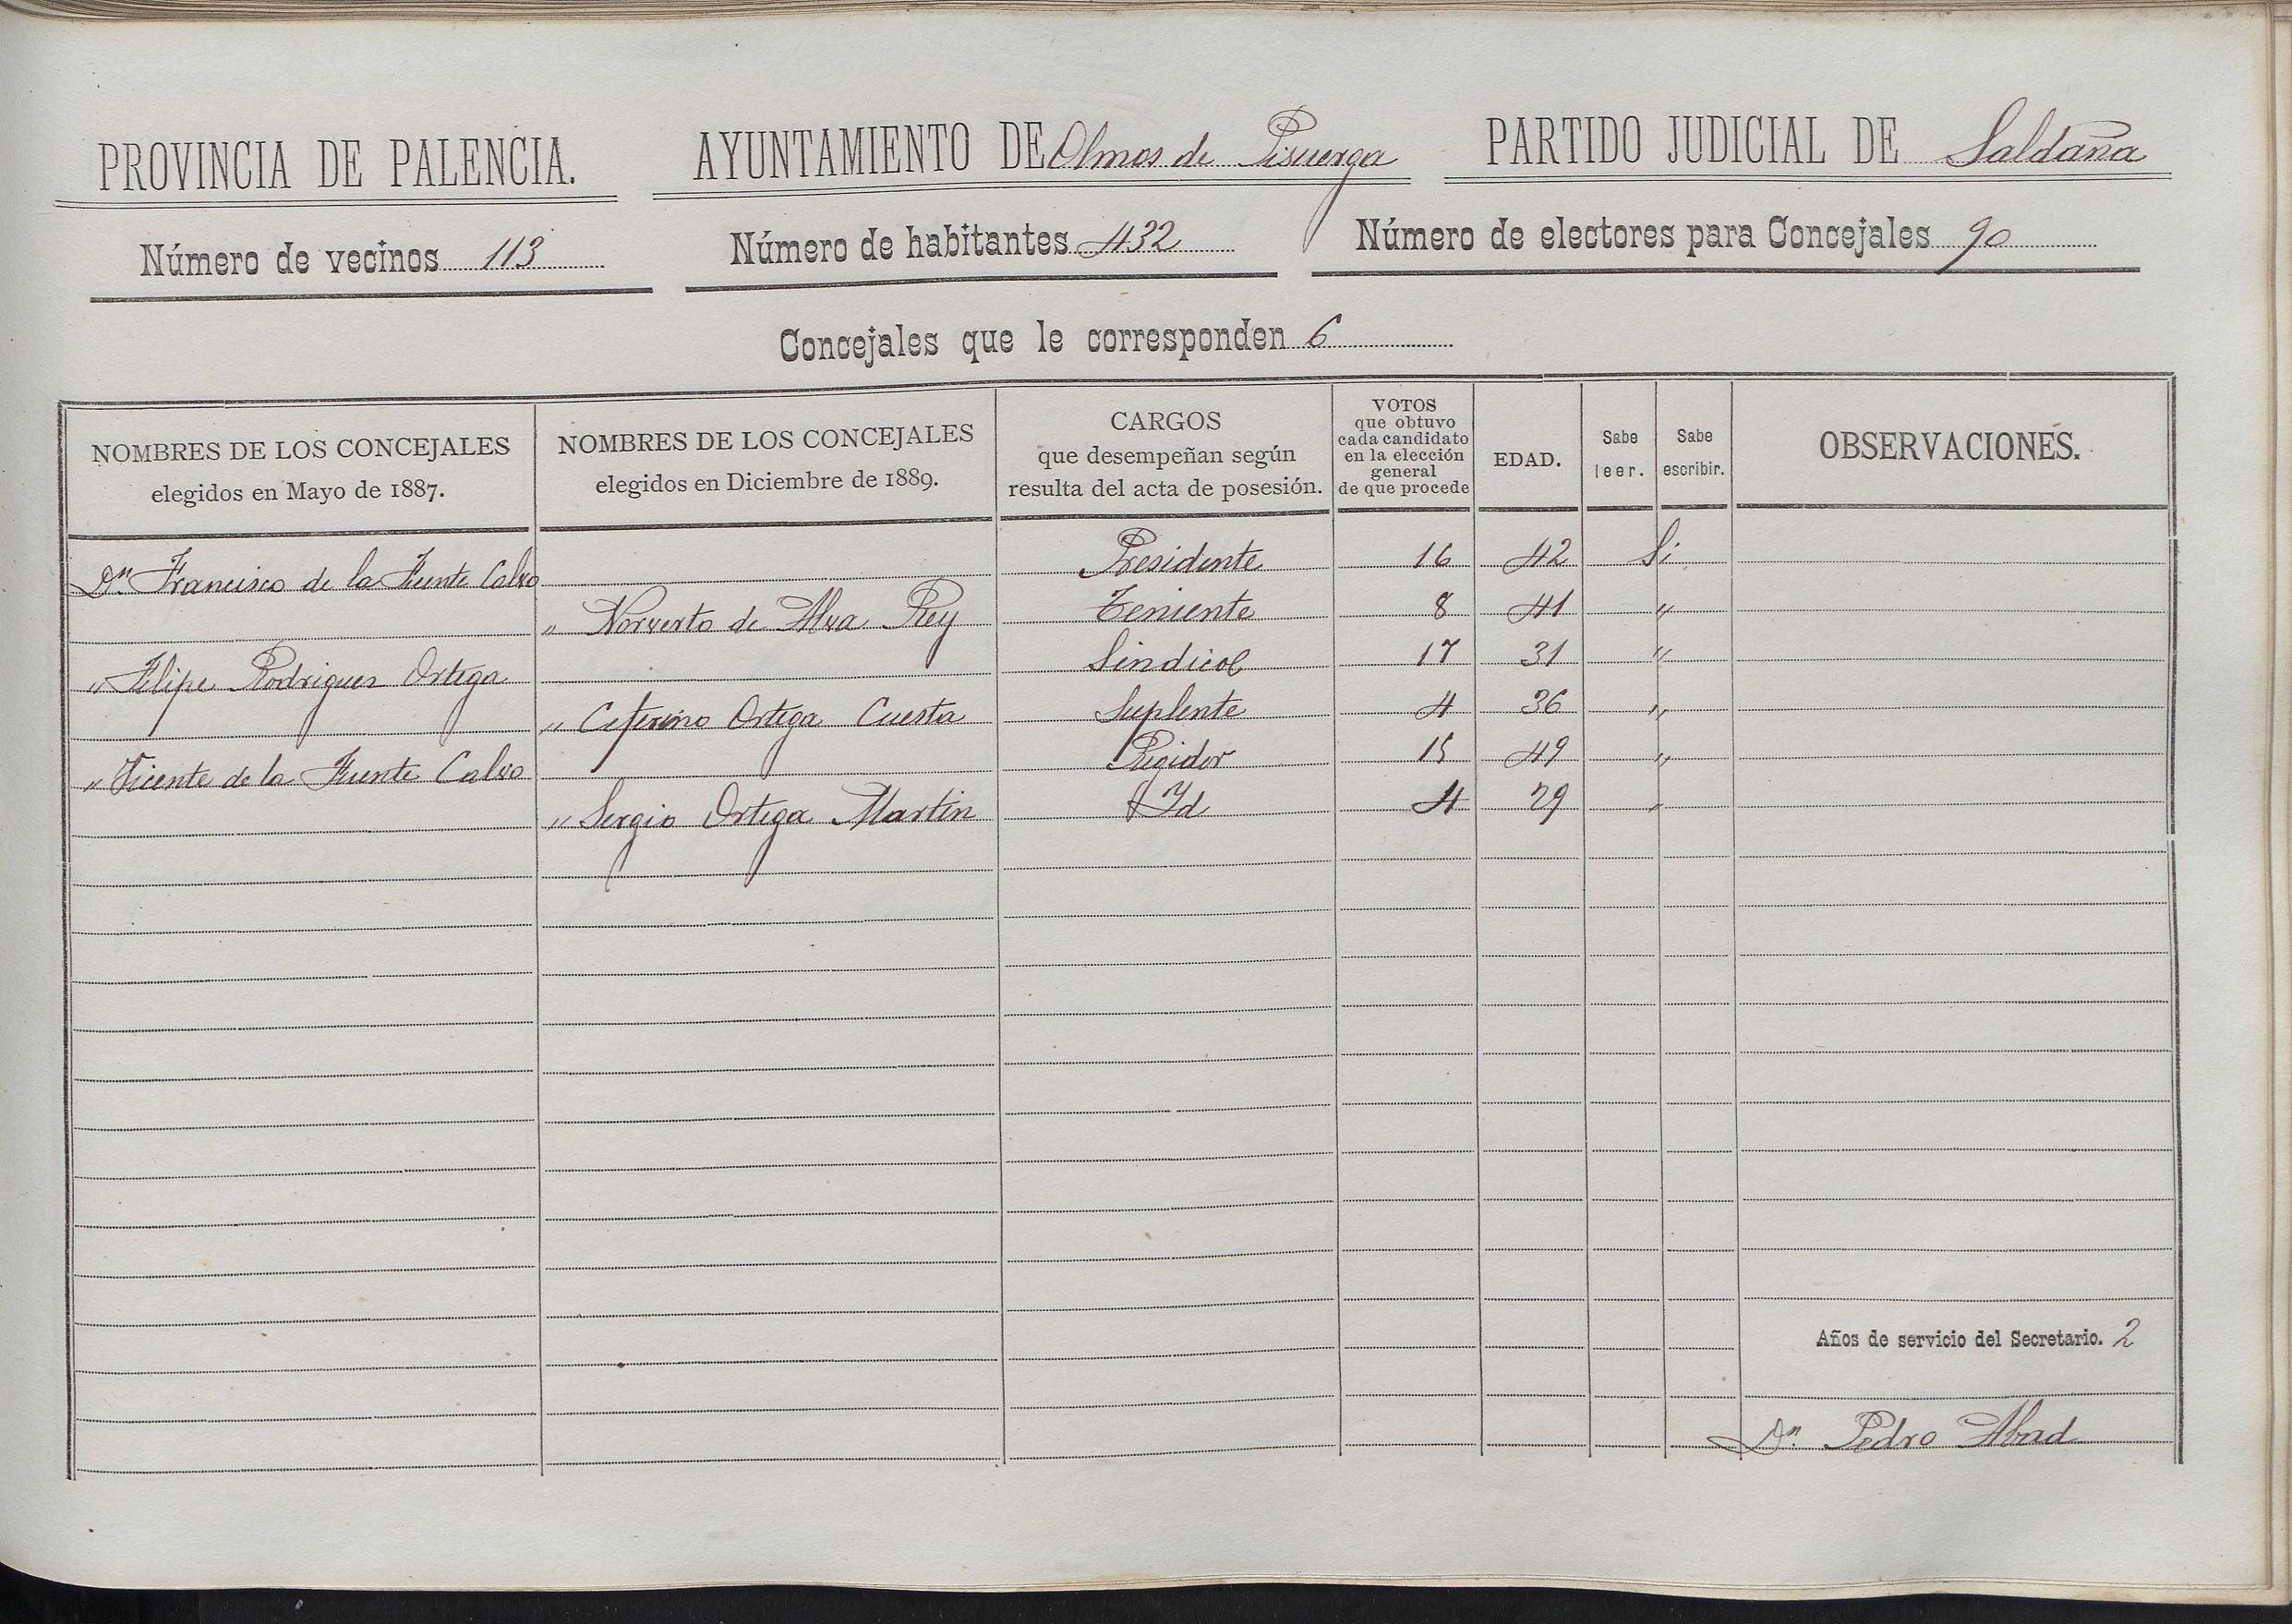 PROVINCIA DE PALENCIA. AYUNTAMIENTO DE Olmos de Pisuerga PARTIDO JUDICIAL DE Saldaña
Número de vecinos 113 Número de habitantes 432 Número de electores para Concejales 90
Concejales que le corresponden 6
NOMBRES DE LOS CONCEJALES elegidos en Mayo de 1887. NOMBRES DE LOS CONCEJALES elegidos en Diciembre de 1889. CARGOS que desempeñan según resulta del acta de posesión. VOTOS que obtuvo cada candidato en la elección general de que procede EDAD. Sabe leer. Sabe escribir. OBSERVACIONES.
Dn. Francisco de la Fuente Calvo Presidente 16 42 Si
" Norverto de Alva Rey Teniente 8 41 "
" Felipe Rodriguez Ortega Sindico 17 31 "
" Ceferino Ortega Cuesta Suplente 4 36 "
" Vicente de la Fuente Calvo Regidor 15 49 "
" Sergio Ortega Martin Id 4 29 "
Años de servicio del Secretario. 2
Dn. Pedro Abad